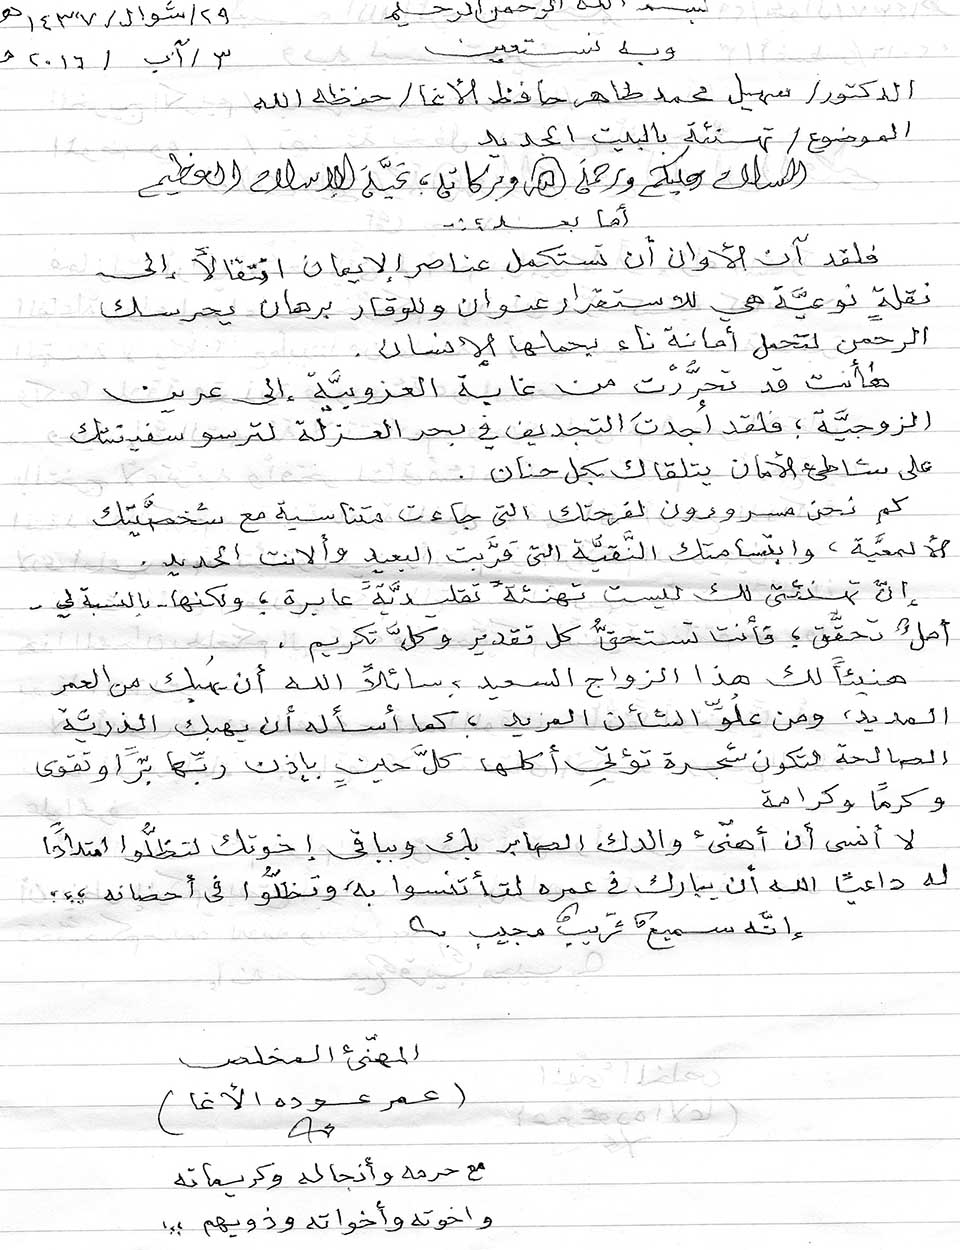 بسم الله الرحمن الرحيم
٢٩/شوال/١٤٣٧هـ
وبه نستعين
٣/آب/٢٠١٦م
الدكتور/ سهيل محمد طاهر حافظ الأغا/ حفظه الله
الموضوع/ تهنئة بالبيت الجديد
السلام عليكم ورحمة الله وبركاته، تحيَّة الإسلام العظيم
أما بعد؛-
فلقد آن الأوان أن تستكمل عناصر الإيمان انتقالاً إلى
نقلةٍ نوعيَّة هي للاستقرار عنوان وللوقار برهان يحرسك
الرحمن لتحمل أمانة ناء بحملها الإنسان.
هأنت قد تحرَّرْت من غابة العزوبيَّة إلى عرين
الزوجيَّة؛ فلقد أجدتَ التجديف في بحر العزلة لترسو سفينتك
على شاطئ الأمان يتلقاك بكل حنان.
كم نحن مسرورون لفرحتك التي جاءت متناسبة مع شخصيَّتك
الألمعيَّة، وابتسامتك النَّقيَّة التي قرَّبت البعيد وألانت الحديد.
إنَّ تهنئتي لك ليست تهنئةً تقليديَّةً عابرة؛ ولكنها- بالنسبة لي-
أملٌ تحقَّق؛ فأنت تستحقُّ كل تقدير وكلَّ تكريم.
هنيئاً لك هذا الزواج السعيد، سائلاً الله أن يهبك من العمر
المديد، ومن علوِّ الشأن المزيد، كما أسأله أن يهبك الذريَّة
الصالحة لتكون شجرة تؤتي أكلها كلَّ حينٍ بإذن ربِّها برًّا وتقوى
وكرمًا وكرامة
لا أنسى أن أهنّئ والدك الصابر بك وبباقي إخوتك لتظلُّوا امتدادًا
له داعيًا الله أن يبارك في عمره لتأتنسوا به، وتظلُّوا في أحضانه ؛؛؛
إنَّه سميعٌ قريبٌ مجيب
المهنّئ المخلص
(عمر عوده الأغا)
مع حرمه وأنجاله وكريماته
واخوته وأخواته وذويهم ؛؛